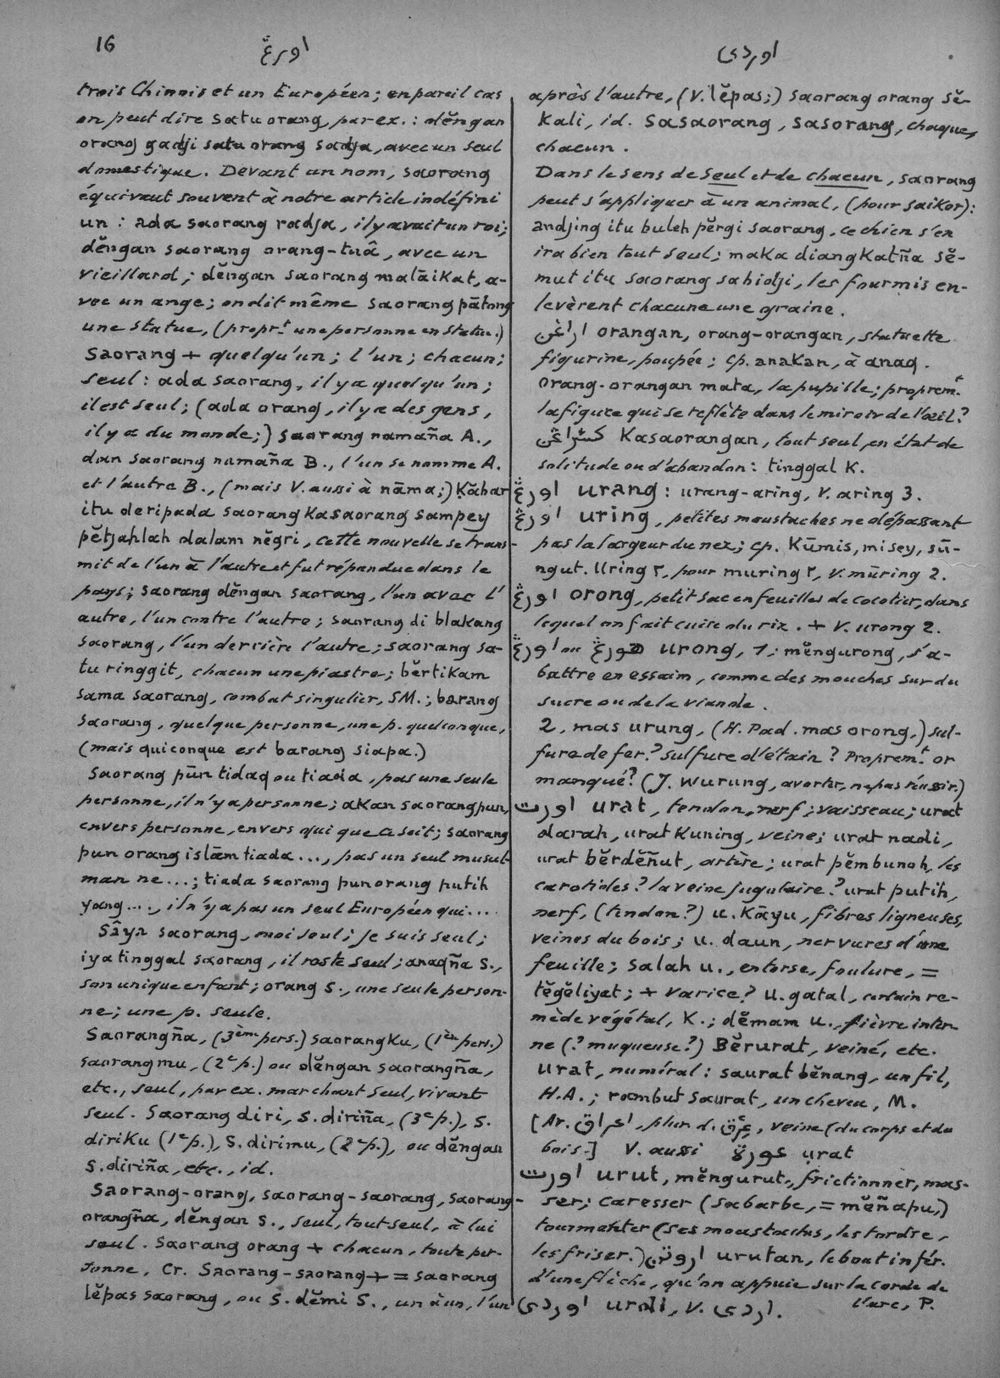 16
اورڠ
اوردى
trois Chinois et un Européen; en pareil cas
on peut dire satu orang, par ex.: dĕngan
orang gadji satu orang sadja, avec un seul
domestique. Devant un nom, saorang
équivaut souvent à notre article indéfini
un: ada saorang radja, il y avait un roi;
dĕngan saorang orang-tuâ, avec un
vieillard; dĕngan saorang malāikat, a-
vec un ange; on dit même saorang pātong
une statue, (propr.t une personne en statue.)
Saorang + quelqu'un; l'un; chacun;
seul: ada saorang, il y a quelqu'un;
il est seul; (ada orang, il y a des gens,
il y a du monde;) saorang namaña A.,
dan saorang namaña B., l'un se nomme A.
et l'autre B., (mais V. aussi à nāma;) Kābar
itu deripada saorang kasaorang sampey
pĕtjahlah dalam nĕgri, cette nouvelle se trans-
mit de l'un à l'autre et fut répandue dans le
pays; saorang dĕngan saorang, l'un avec l'
autre, l'un contre l'autre; saorang di blakang
saorang, l'un derrière l'autre; saorang sa-
tu ringgit, chacun une piastre; bĕrtikam
sama saorang, combat singulier, SM.; barang
saorang, quelque personne, une p. quelconque,
(mais quiconque est barang siapa.)
Saorang pūn tidaq ou tiada, pas une seule
personne, il n'y a personne; akan saorang pun,
envers personne, envers qui que ce soit; saorang
pun orang islām tiada ..., pas un seul musul-
man ne...; tiada saorang pun orang putih
yang ..., il n'y a pas un seul Européen qui....
Sâya saorang, moi seul; je suis seul;
iya tinggal saorang, il reste seul; anaqña s.,
son unique enfant; orang s., une seule person-
ne; une p. seule.
Saorangña, (3ème pers.) saorangku, (1ère pers.)
saorangmu, (2e p.) ou dĕngan saorangña,
etc., seul, par ex. marchant seul, vivant
seul. Saorang diri, s. diriña, (3e p.), s.
diriku (1e p.), s. dirimu, (2e p.), ou dĕngan
s. diriña, etc., id.
Saorang-orang, saorang-saorang, saorang-
orangña, dĕngan s., seul, tout seul, à lui
seul. Saorang orang + chacun, toute per-
sonne, Cr. Saorang-saorang + = saorang
lĕpas saorang, ou s. dĕmi s., un à un, l'un
après l'autre, (V. lĕpas;) saorang orang sĕ-
kali, id. Sasaorang, sasorang, chaque,
chacun.
Dans le sens de seul et de chacun, saorang
peut s'appliquer à un animal, (pour saikor):
andjing itu buleh pĕrgi saorang, ce chien s'en
ira bien tout seul; maka diangkatña sĕ-
mut itu saorang sabidji, les fourmis en-
levèrent chacune une graine.
اراڠن orangan, orang-orangan, statuette
figurine, poupée; cp. anakan, à anaq.
Orang-orangan mata, la pupille; proprem.t
la figure qui se reflète dans le miroir de l'œil?
Kasaorangan, tout seul, en état de
solitude ou d'abandon: tinggal K.
اورڠ urang: urang-aring, V. aring 3.
اورڠ uring, petites moustaches ne dépassant
pas la largeur du nez; cp. Kūmis, misey, sū-
ngut. Uring٢, pour muring٢, V. mūring 2.
اورڠ orong, petit sac en feuilles de cocotier, dans
lequel on fait cuire du riz. + V. urong 2.
اورڠ ou هورڠ urong, 1, mĕngurong, s'a-
battre en essaim, comme des mouches sur du
sucre ou de la viande.
2, mas urung, (H. Pad. mas orong,) sul-
fure de fer? sulfure d'étain? Proprem.t or
manqué? (J. wurung, avorter, ne pas réussir.)
اورت urat, tendon, nerf; vaisseau; urat
darah, urat kuning, veine; urat nadi,
urat bĕrdĕñut, artère; urat pĕmbunoh, les
carotides? la veine jugulaire? urat putih,
nerf, (tendon?) u. Kāyu, fibres ligneuses,
veines du bois; u. daun, nervures d'une
feuille; salah u., entorse, foulure, =
tĕgĕliyat; + varice? U. gatal, certain re-
mède végétal, K.; dĕmam u., fièvre inter-
ne (? muqueuse?) Bĕrurat, veiné, etc.
Urat, numéral: saurat bĕnang, un fil,
H.A.; rambut saurat, un cheveu, M.
[Ar. اعراق, plur. d. عرق, veine (du corps et du
bois.] V. aussi عورة urat
اورت urut, mĕngurut, frictionner, mas-
ser; caresser (sa barbe, = mĕñapu,)
tourmenter (ses moustaches, les tordre,
les friser.) اروتن urutan, le bout infér.
d'une flèche, qu'on appuie sur la corde de
l'arc, P.
اوردى urdi, V. اردى.